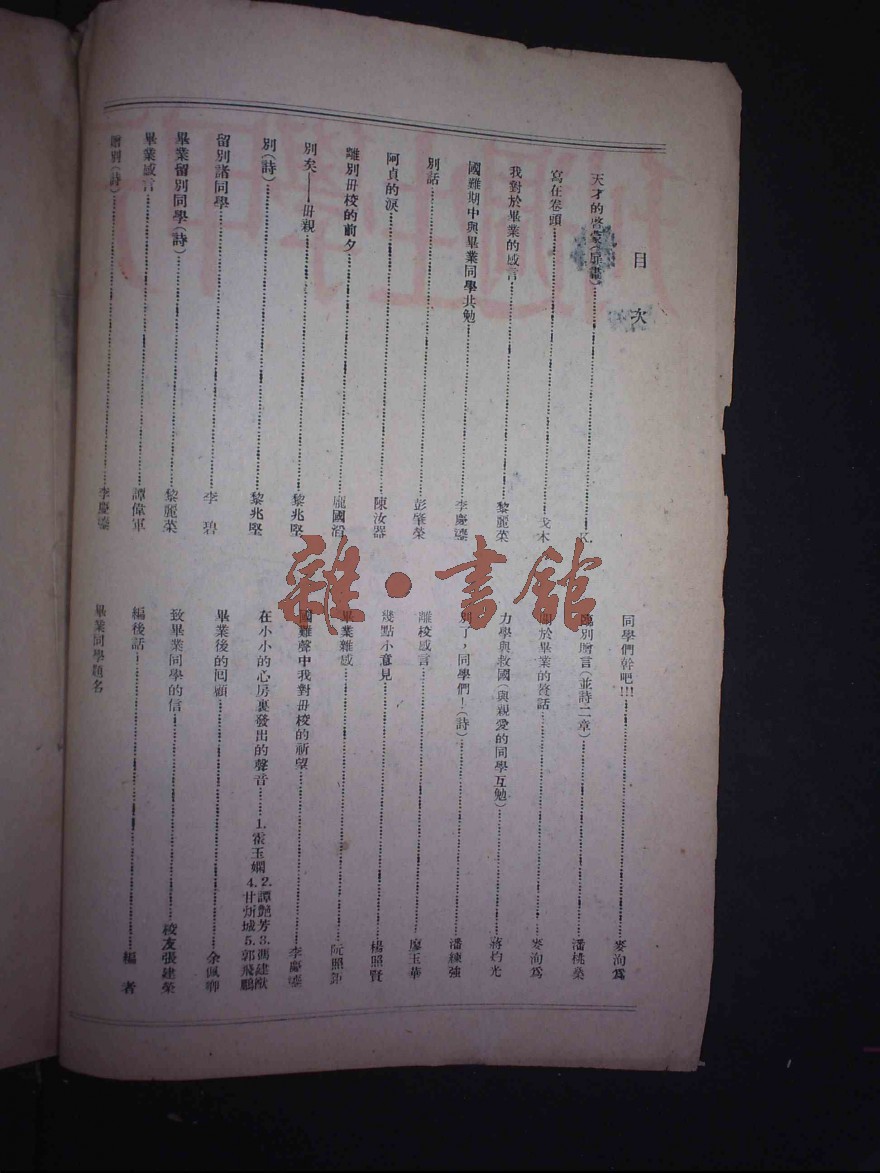 目次
天才的啓蒙(扉畫)……K.
寫在卷頭……戈木
我對於畢業的感言……黎麗菜
國難期中與畢業同學共勉……李慶鎏
別話……彭肇榮
阿貞的淚……陳汝器
離別毌校的前夕……龐國滔
別矣——毌親……黎兆堅
別(詩)……黎兆堅
留別諸同學……李碧
畢業留別同學(詩)……黎麗菜
畢業感言……譚偉軍
贈別(詩)……李慶鎏
同學們幹吧!!!……麥洵爲
臨別贈言(並詩二章)……潘桃燊
關於畢業的餐話……麥洵爲
力學與救國(與親愛的同學互勉)……蔣灼光
別了,同學們!(詩)……潘練強
離校感言……廖玉華
幾點小意見……楊照賢
畢業雜感……阮照鉅
國難聲中我對毌校的祈望……李慶鎏
在小小的心房裏發出的聲音……1.霍玉嫻2.譚艶芳3.馮建猷4.甘炳城5.郭飛鵬
畢業後的回顧……余佩卿
致畢業同學的信……校友張建榮
編後話……編者
畢業同學題名
雜·書館